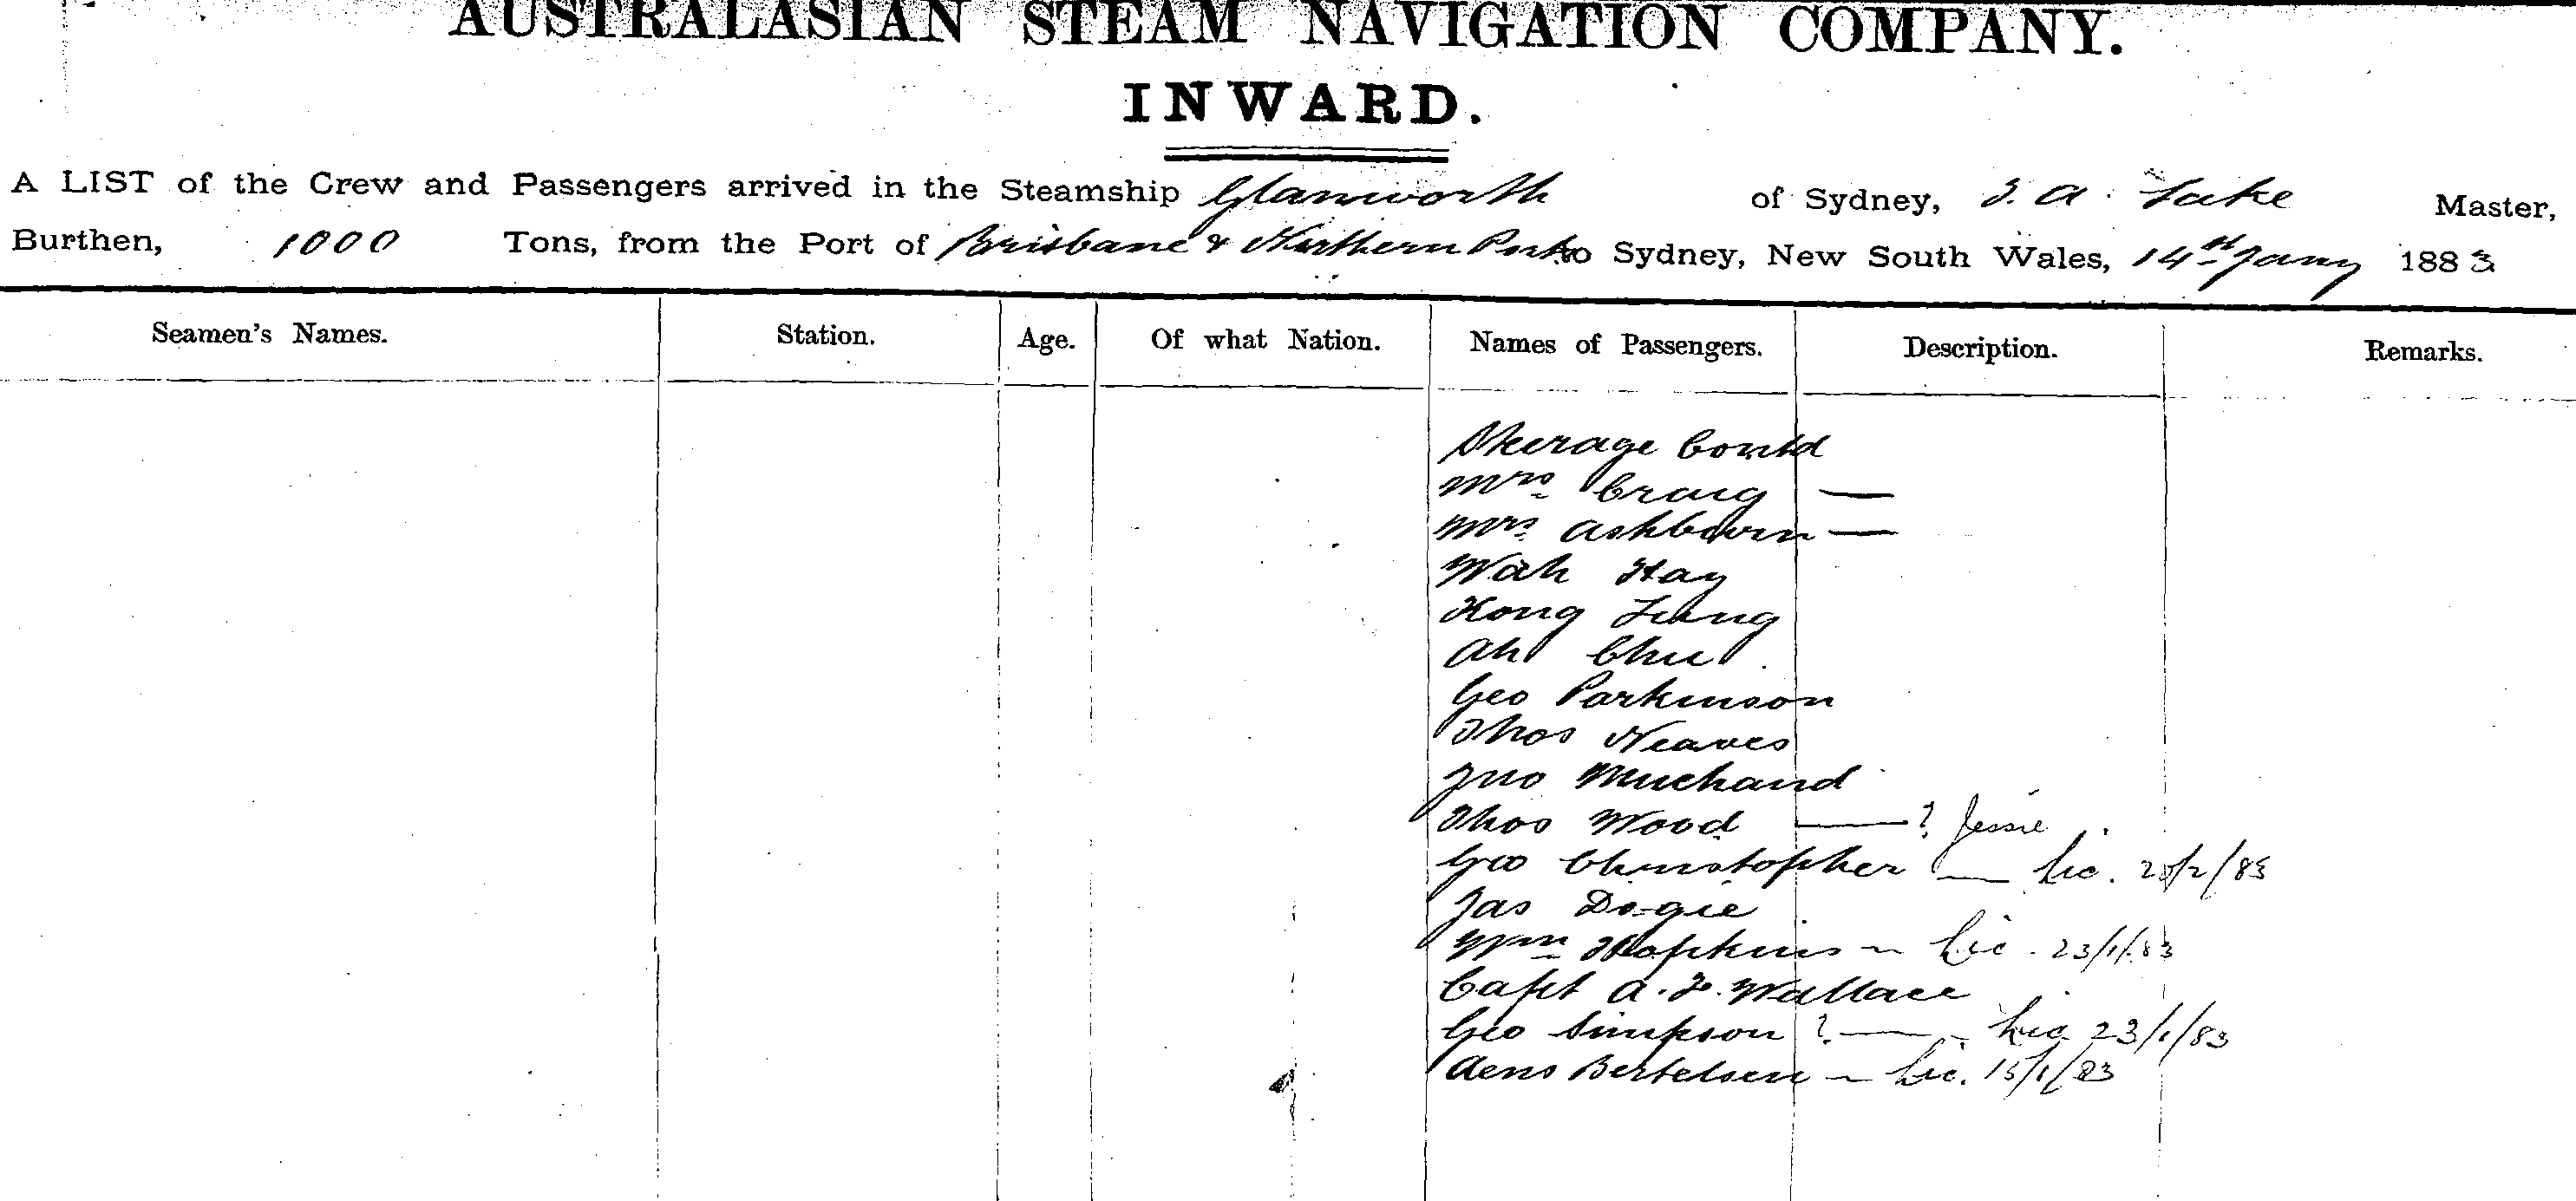 AUSTRALASIAN STEAM NAVIGATION COMPANY.
INWARD.
A LIST of the Crew and Passengers arrived in the Steamship Glanworth of Sydney, J. A. Lake Master,
Burthen, 1000 Tons, from the Port of Brisbane & Northern Ports to Sydney, New South Wales, 14th Jany 1883
Seamen's Names. Station. Age. Of what Nation. Names of Passengers. Description. Remarks.
Steerage Contd
Mrs Craig —
Mrs Ashbourn —
Wah Hay
Kong Lung
Ah Chu
Geo Parkinson
Thos Neaves
Jno Muchand
Thos Wood — ? Jessie
Geo Christopher — Lic. 20/2/83
Jas Dogie
Wm Hopkins - Lic. 23/1/83
Capt A. F. Wallace
Geo Simpson ? — Lic 23/1/83
Aens Bertelsen - Lic. 15/1/83